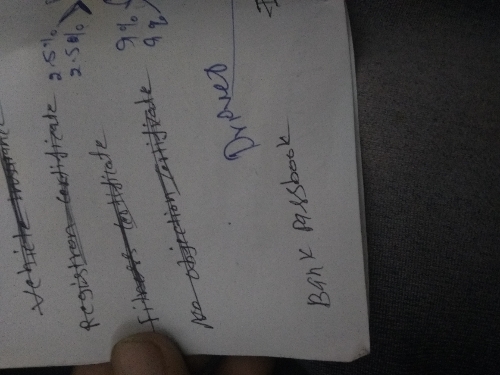 Vehicle insurance
Registron certificate 2.5%
2.5%
Fitness certificate 9%
No objection certificate 9%
Bank Passbook